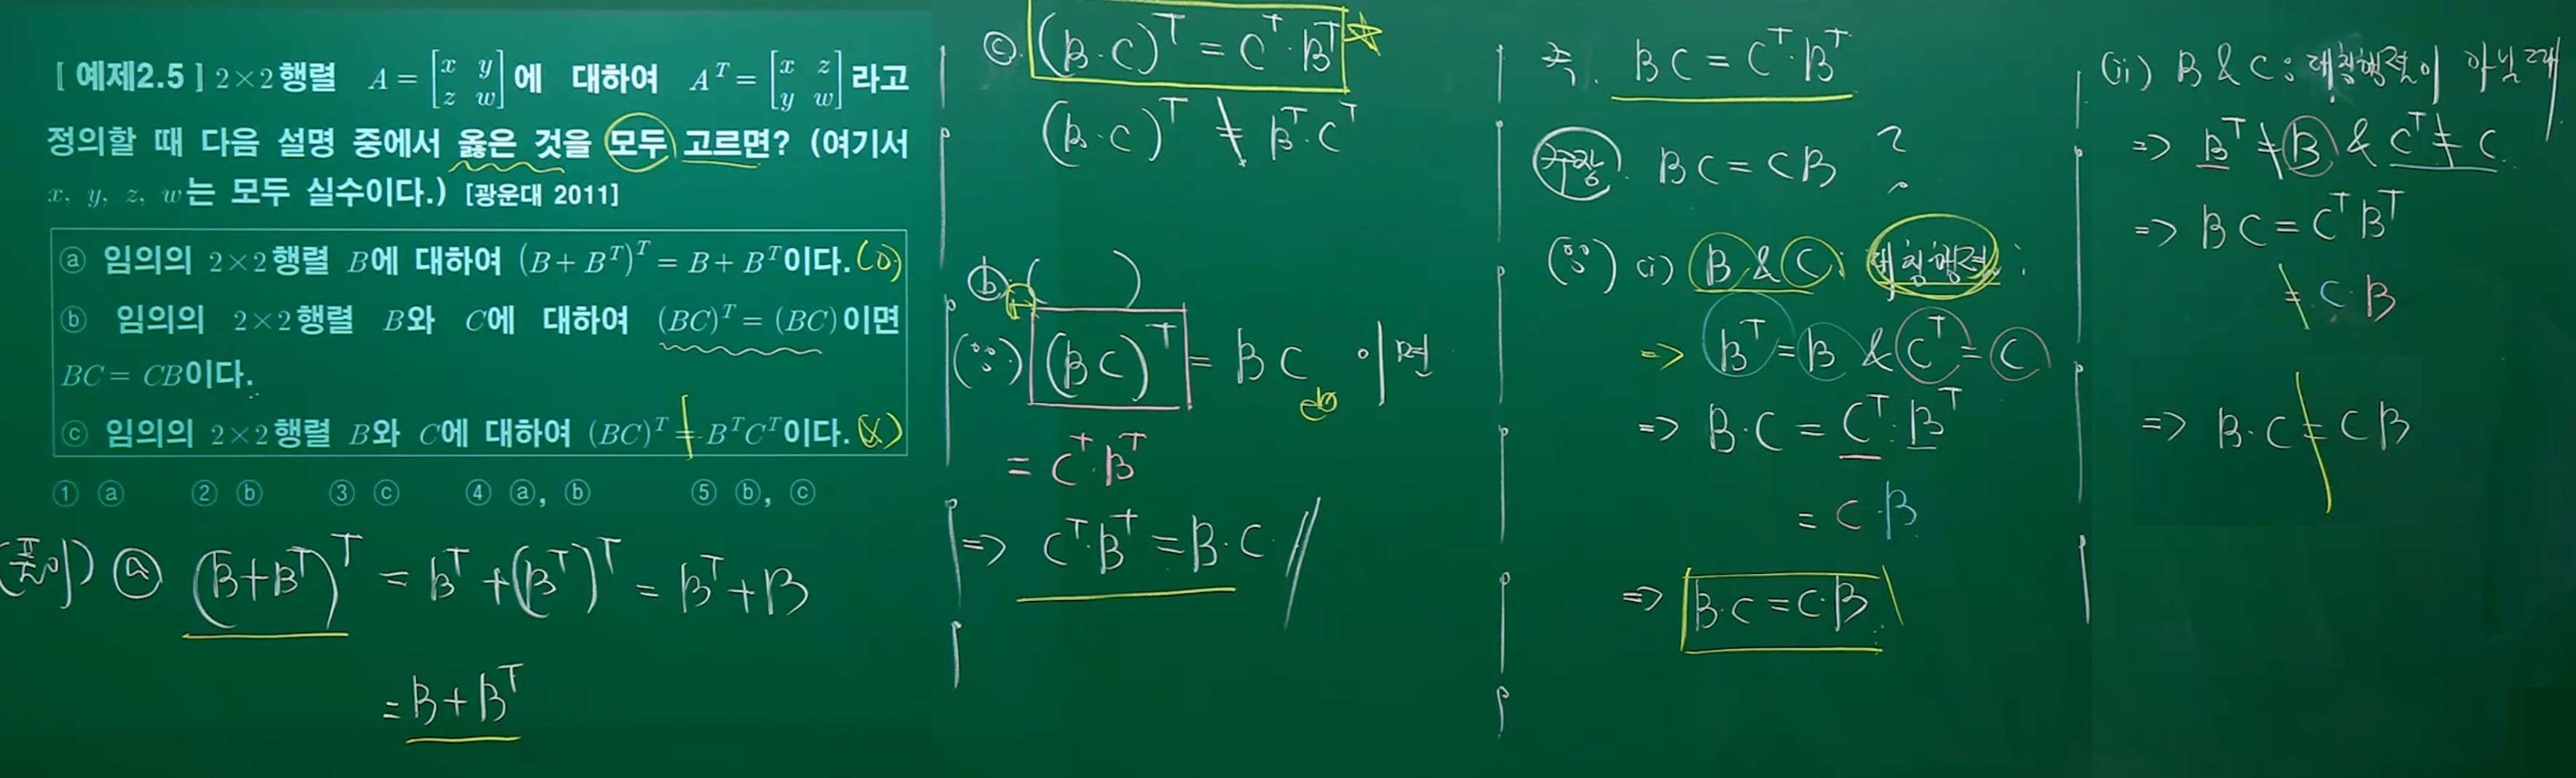 [ 예제2.5 ] 2×2행렬 A = [x y; z w] 에 대하여 A^T = [x z; y w] 라고
정의할 때 다음 설명 중에서 옳은 것을 모두 고르면? (여기서
x, y, z, w는 모두 실수이다.) [광운대 2011]
ⓐ 임의의 2×2행렬 B에 대하여 (B+B^T)^T = B+B^T이다. (O)
ⓑ 임의의 2×2행렬 B와 C에 대하여 (BC)^T = (BC)이면
BC = CB이다.
ⓒ 임의의 2×2행렬 B와 C에 대하여 (BC)^T = B^T C^T이다. (X)
① ⓐ ② ⓑ ③ ⓒ ④ ⓐ, ⓑ ⑤ ⓑ, ⓒ
(풀이) ⓐ (B+B^T)^T = B^T+(B^T)^T = B^T+B
= B+B^T
ⓒ. (B·C)^T = C^T·B^T ☆
(B·C)^T ≠ B^T·C^T
ⓑ ( )
(∵) (BC)^T = BC 이면
= C^T·B^T
=> C^T·B^T = B·C //
즉. BC = C^T·B^T
주장. BC = CB ?
(∵) (i) B & C : 대칭행렬 :
=> B^T = B & C^T = C
=> B·C = C^T·B^T
= C·B
=> B·C = C·B
(ii) B & C : 대칭행렬이 아닐 때
=> B^T ≠ B & C^T ≠ C
=> BC = C^T B^T
≠ C·B
=> B·C ≠ CB